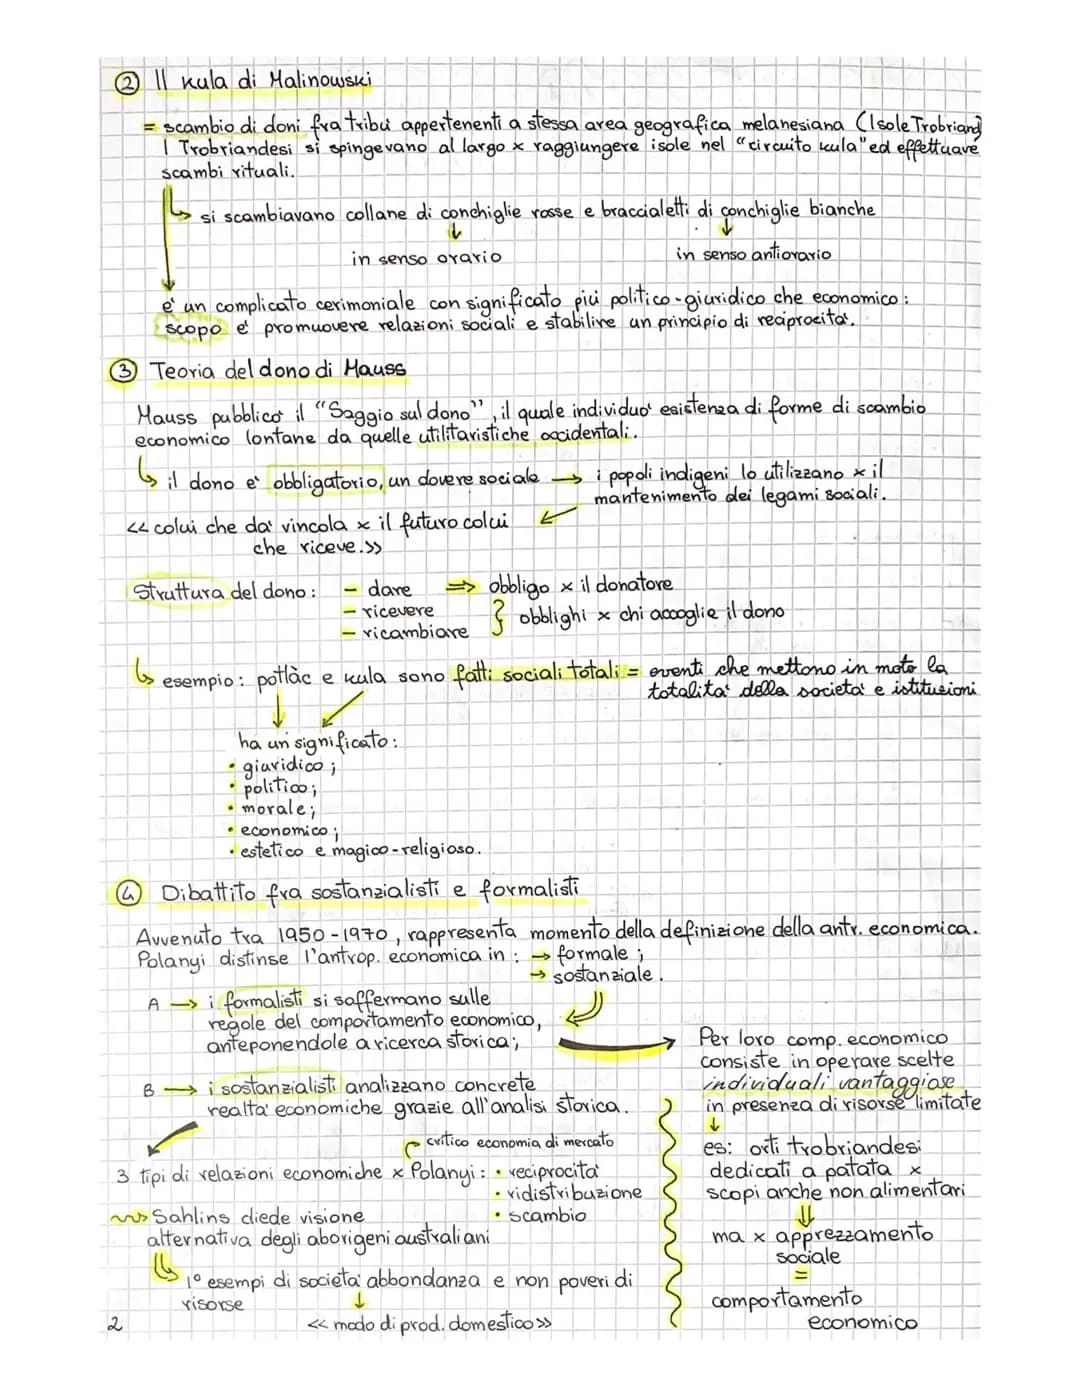 ② Il kula di Malinowski
= scambio di doni fra tribù appertenenti a stessa area geografica melanesiana (Isole Trobriand)
I Trobriandesi si spingevano al largo x raggiungere isole nel "circuito kula" ed effettuare
scambi rituali.
↳ si scambiavano collane di conchiglie rosse e braccialetti di conchiglie bianche
↓ ↓
in senso orario in senso antiorario
è un complicato cerimoniale con significato più politico-giuridico che economico:
scopo è promuovere relazioni sociali e stabilire un principio di reciprocità.
③ Teoria del dono di Mauss
Mauss pubblicò il "Saggio sul dono", il quale individuò esistenza di forme di scambio
economico lontane da quelle utilitaristiche occidentali.
↳ il dono è obbligatorio, un dovere sociale → i popoli indigeni lo utilizzano x il
mantenimento dei legami sociali.
<< colui che dà vincola x il futuro colui
che riceve.>>
Struttura del dono: - dare ⇒ obbligo x il donatore
- ricevere
} obblighi x chi accoglie il dono
- ricambiare
↳ esempio: potlàc e kula sono fatti sociali totali = eventi che mettono in moto la
totalità della società e istituzioni
ha un significato:
• giuridico;
• politico;
• morale;
• economico;
• estetico e magico-religioso.
④ Dibattito fra sostanzialisti e formalisti
Avvenuto tra 1950-1970, rappresenta momento della definizione della antr. economica.
Polanyi distinse l'antrop. economica in: → formale;
→ sostanziale.
A → i formalisti si soffermano sulle
regole del comportamento economico,
anteponendole a ricerca storica;
B → i sostanzialisti analizzano concrete
realtà economiche grazie all'analisi storica.
critico economia di mercato
3 tipi di relazioni economiche x Polanyi: • reciprocità
• ridistribuzione
• scambio
Sahlins diede visione
alternativa degli aborigeni australiani
1° esempi di società abbondanza e non poveri di
risorse ↓
<< modo di prod. domestico >>
Per loro comp. economico
consiste in operare scelte
individuali vantaggiose
in presenza di risorse limitate
↓
es: orti trobriandesi
dedicati a patata x
scopi anche non alimentari
⇓
ma x apprezzamento
sociale
=
comportamento
economico
2